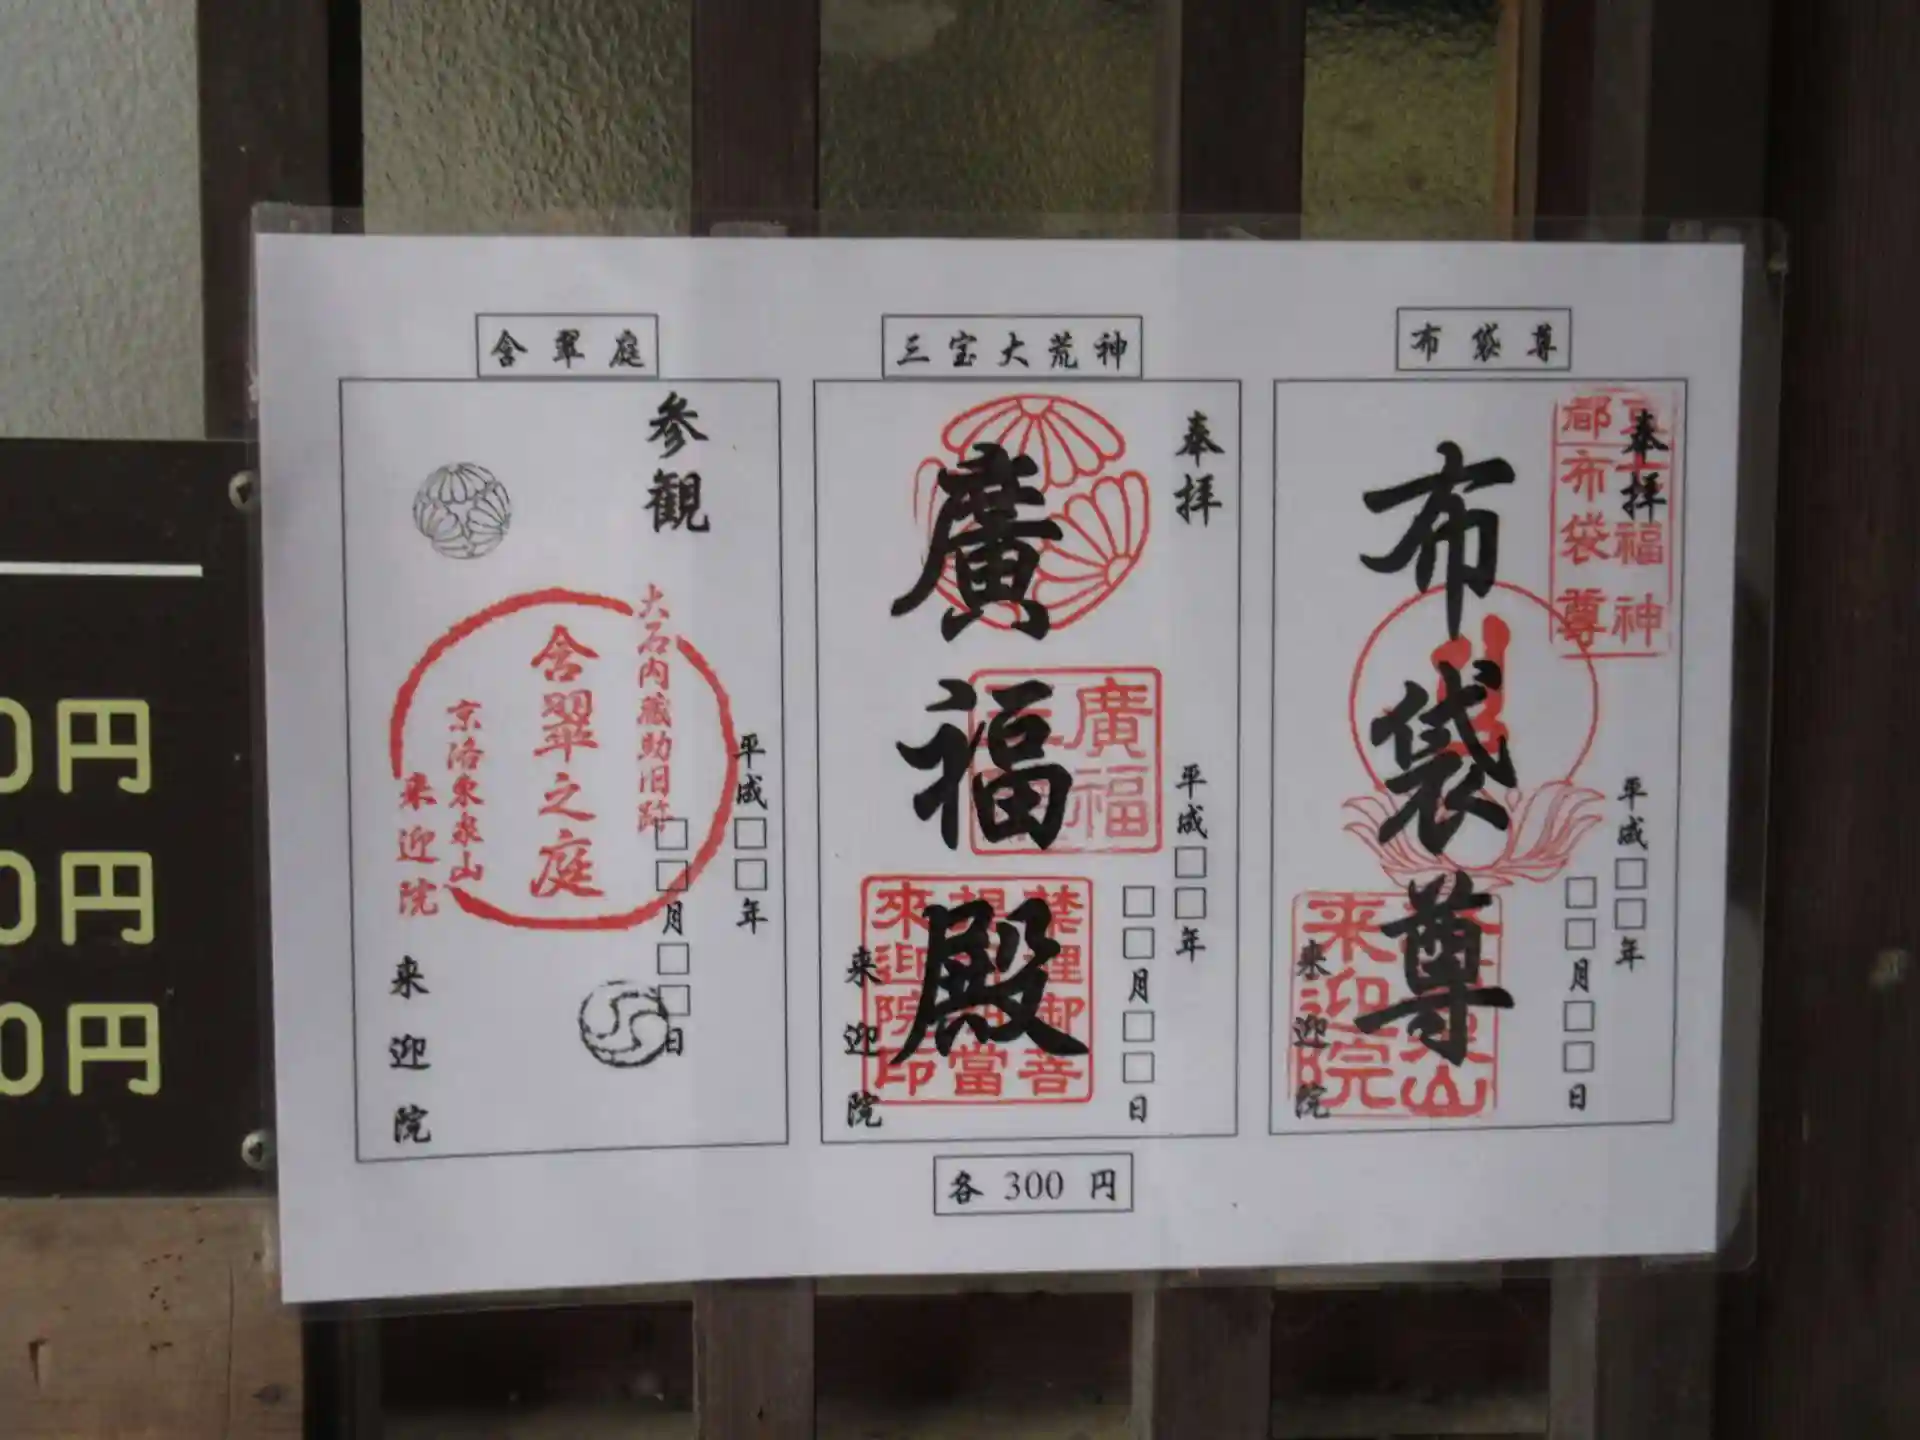 布袋尊
奉拝
都布袋尊
福神
布袋尊
平成□□年
□□月□□日
来迎院
来迎院
三宝大荒神
奉拝
廣福殿
廣福
平成□□年
□□月□□日
来迎院
來迎院印
含翠庭
参観
大石内蔵助旧跡
含翠之庭
京洛東泉山
来迎院
平成□□年
□□月□□日
来迎院
各300円
0円
0円
0円